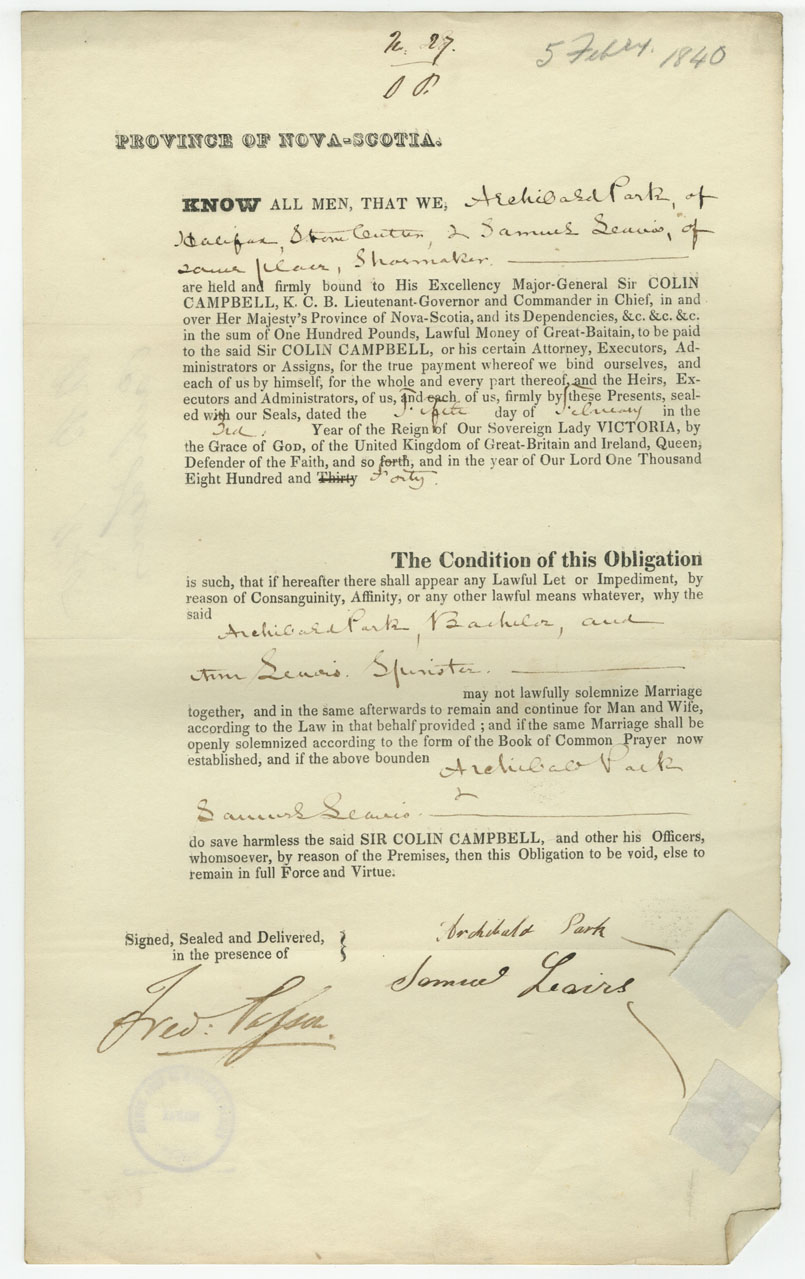 N. 27.
5 Febry. 1840
PROVINCE OF NOVA-SCOTIA.
KNOW ALL MEN, THAT WE, Archibald Park, of
Halifax, Stone Cutter, & Samuel Leavis, of
same place, Shoemaker.
are held and firmly bound to His Excellency Major-General Sir COLIN
CAMPBELL, K. C. B. Lieutenant-Governor and Commander in Chief, in and
over Her Majesty's Province of Nova-Scotia, and its Dependencies, &c. &c. &c.
in the sum of One Hundred Pounds, Lawful Money of Great-Baitain, to be paid
to the said Sir COLIN CAMPBELL, or his certain Attorney, Executors, Ad-
ministrators or Assigns, for the true payment whereof we bind ourselves, and
each of us by himself, for the whole and every part thereof, and the Heirs, Ex-
ecutors and Administrators, of us, and each of us, firmly by these Presents, seal-
ed with our Seals, dated the Fifth day of February in the
3rd. Year of the Reign of Our Sovereign Lady VICTORIA, by
the Grace of GOD, of the United Kingdom of Great-Britain and Ireland, Queen,
Defender of the Faith, and so forth, and in the year of Our Lord One Thousand
Eight Hundred and Thirty Forty.
The Condition of this Obligation
is such, that if hereafter there shall appear any Lawful Let or Impediment, by
reason of Consanguinity, Affinity, or any other lawful means whatever, why the
said
Archibald Park, Bachelor, and
Ann Leavis. Spinster.
may not lawfully solemnize Marriage
together, and in the same afterwards to remain and continue for Man and Wife,
according to the Law in that behalf provided ; and if the same Marriage shall be
openly solemnized according to the form of the Book of Common Prayer now
established, and if the above bounden Archibald Park
&
Samuel Leavis.
do save harmless the said SIR COLIN CAMPBELL, and other his Officers,
whomsoever, by reason of the Premises, then this Obligation to be void, else to
remain in full Force and Virtue.
Signed, Sealed and Delivered,
in the presence of
Archibald Park
Samuel Leavis
Fred: